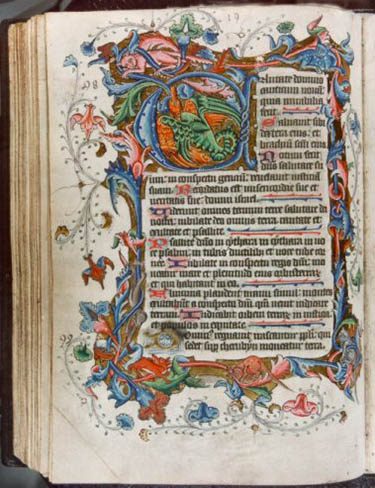 Cantate domino
canticum nouu:
quia mirabilia
fecit
Saluauit sibi
dextera eius: et
brachiu scm eius
Notum fecit
dns salutare su
um: in conspectu gentiu reuelauit iusticia
suam. Recordatus est misericordie sue et
ueritatis sue: domui israel.
Uiderunt omnes termini terre salutare dei
nostri: iubilate deo omnis terra cantate et
exultate et psallite.
Psallite dno in cythara in cythara et uo
ce psalmi: in tubis ductilibus et uoce tube cor
nee. Iubilate in conspectu regis dni: mo
ueatur mare et plenitudo eius orbis terrarz
et qui habitant in eo.
Flumina plaudent manu simul: montes
exultabunt a conspectu dni qm uenit iudicare
terram. Iudicabit orbem terrarz in iusticia
et populos in equitate.
Dominus regnauit irascantur ppli: qui
sedet sup cherubyn moueatur terra.